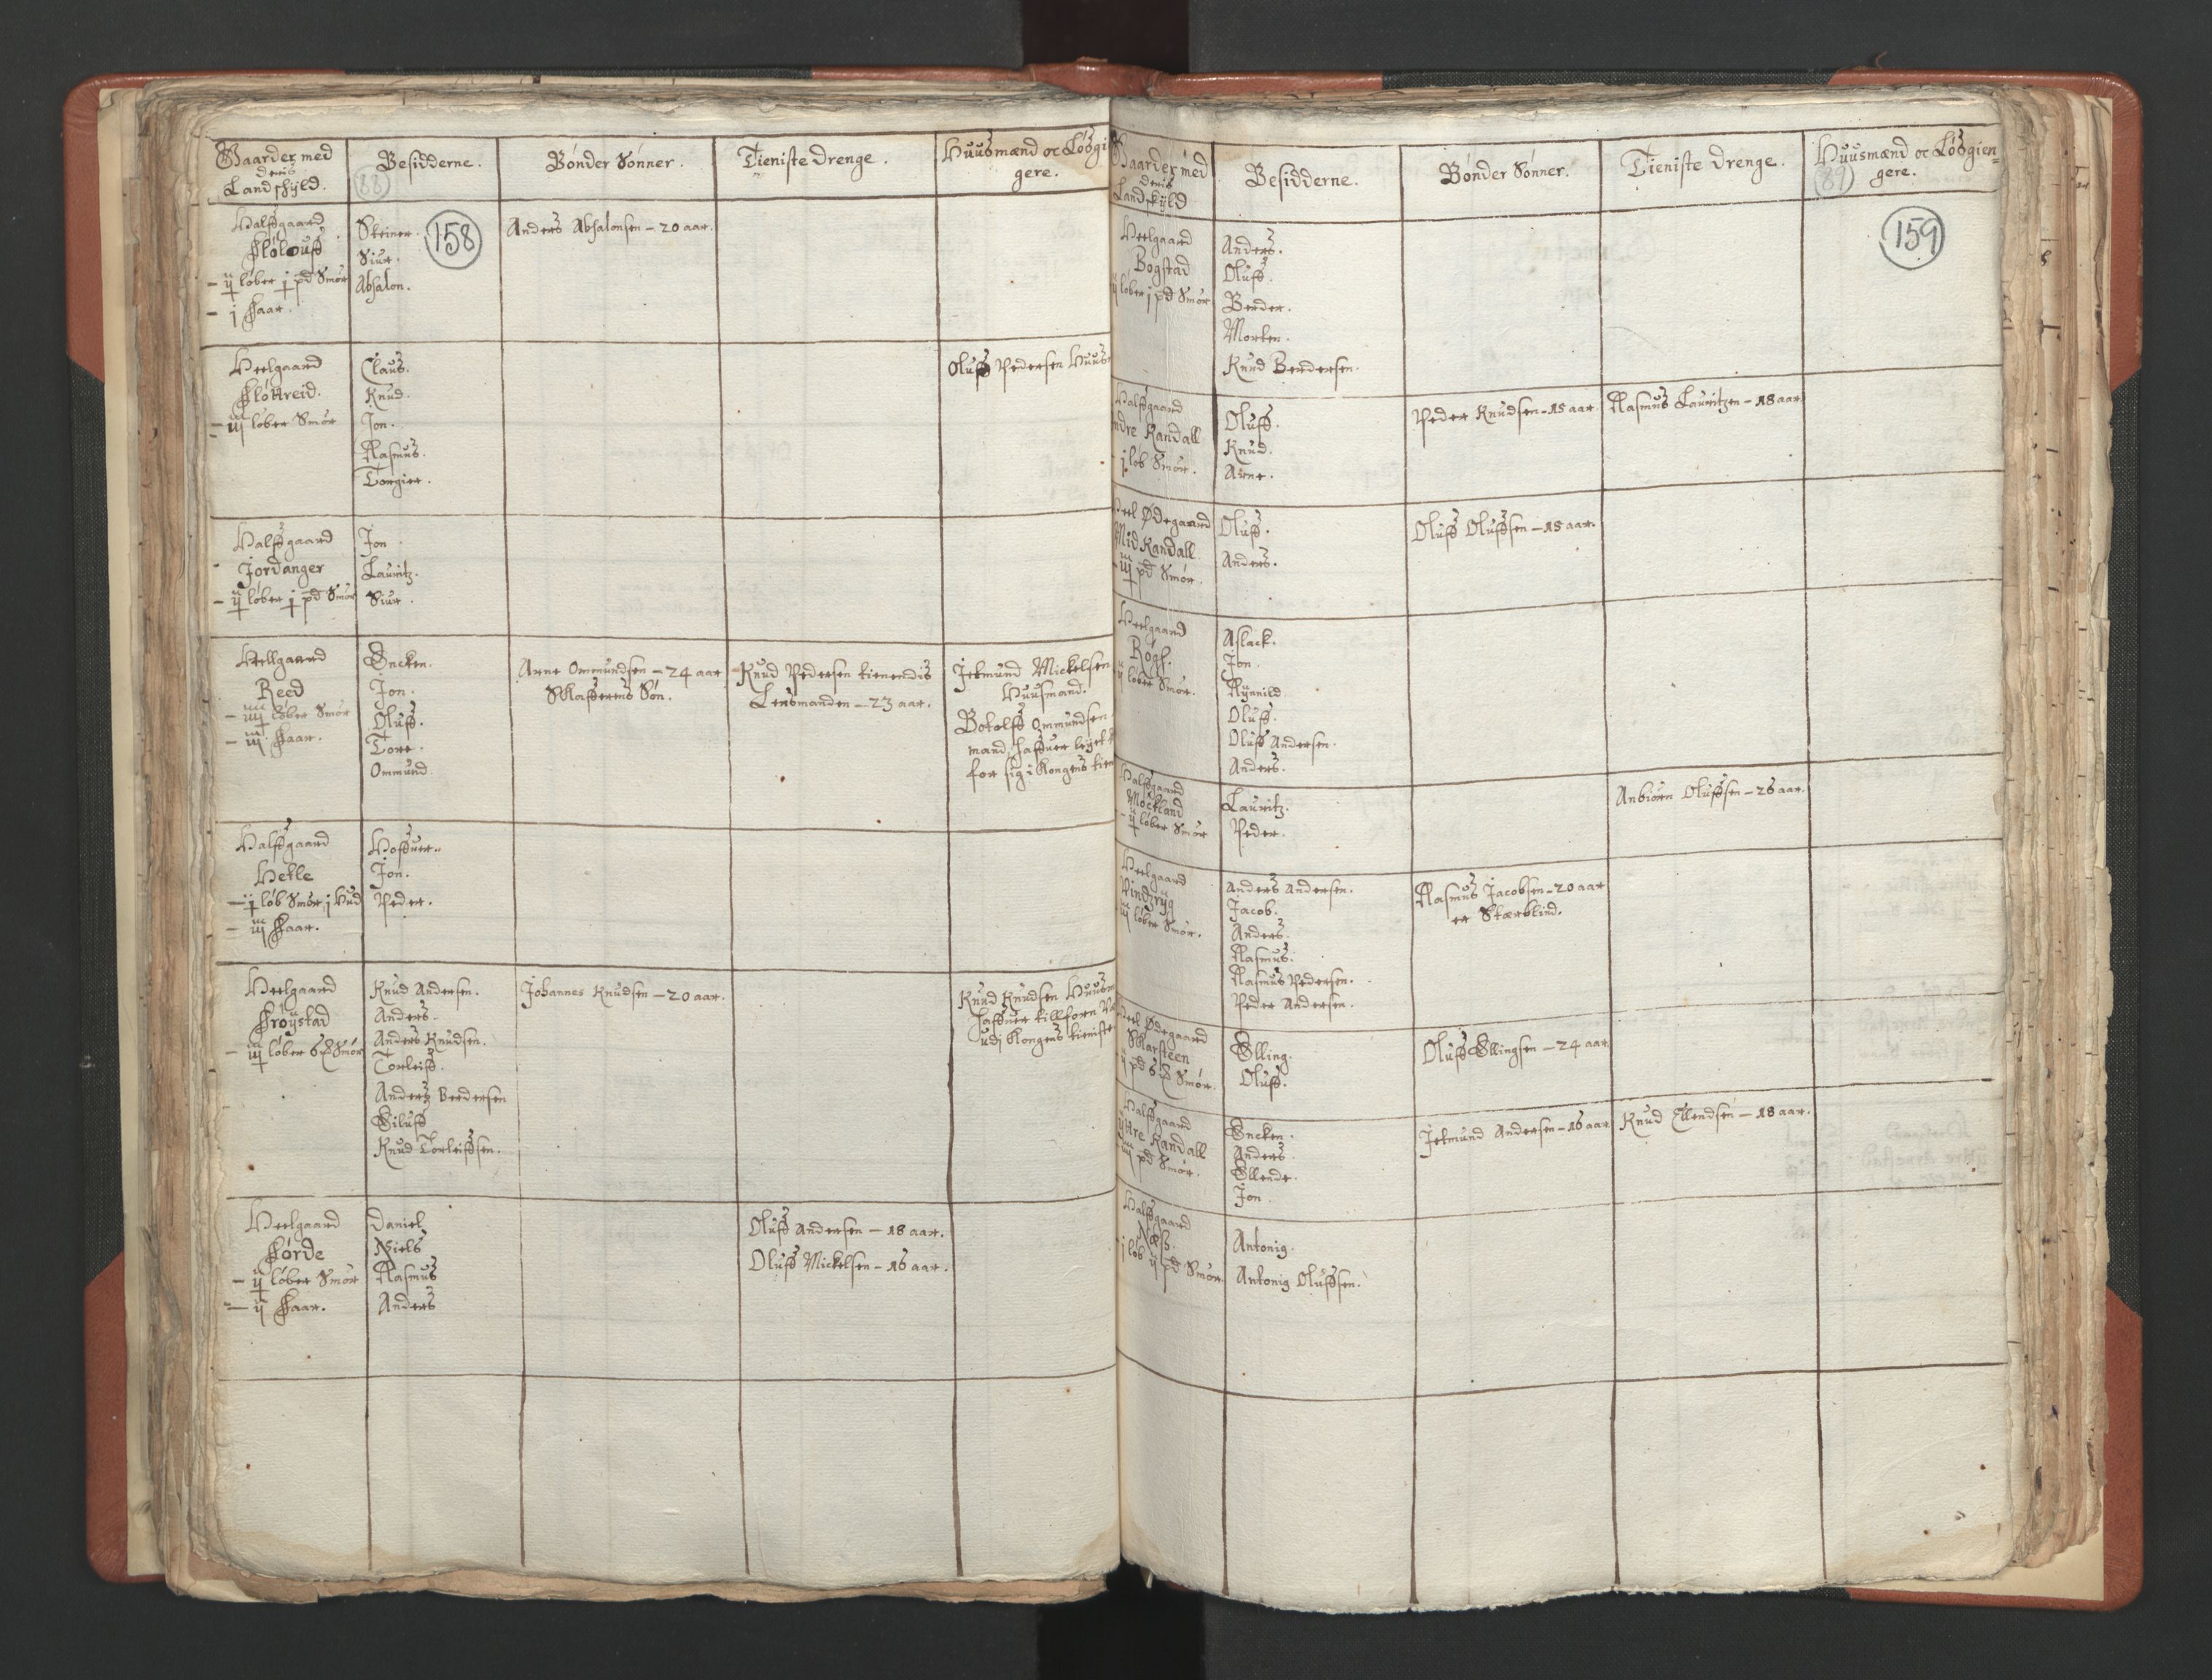 Gaarder med
deris
Landskyld.
Besidderne.
(88)
Bønder Sønner.
Tieniste drenge.
Huusmænd oc Løsgi
gere.
158
Halffgaard
Flølouff
- ij løber j pd Smør
- j Faar.
Steiner.
Siur.
Absalon.
Anders Absalonsen - 20 aar.
Heelgaard
Fløttreid.
- iij løber Smør
Claus.
Knud.
Jon.
Rasmus.
Torgier.
Oluff Pedersen Huus
Halffgaard
Jordanger
- ij løber j pd Smør
Jon
Lauritz.
Siur.
Heellgaard
Reed
- iiij løber Smør
- iij Faar.
Encken.
Jon.
Oluff.
Tore.
Ommund.
Arne Ommundsen - 24 aar
Skafferens Søn.
Knud Pedersen tienendis
Lensmanden - 23 aar.
Jetmund Mickelsen
Huusmand.
Botolff Ommundsen
mand, haffuer leyet
for sig i Kongens tien
Halffgaard
Hetle
- j løb Smør j Hud
- iij Faar.
Hoffuer.
Jon.
Peder.
Heelgaard
Frøystad
- iij løber 6 ℔ Smør
Knud Andersen.
Anders.
Anders Knudsen.
Torleiff.
Anders Berdersen
Eiluff
Knud Torleiffsen.
Johannes Knudsen - 20 aar.
Knud Knudsen Huusm
haffuer tillforn
udj Kongens tieniste
Heelgaard
Førde
- ij løber Smør
- ij Faar.
Daniel
Niels
Rasmus
Anders
Oluff Andersen - 18 aar.
Oluff Mickelsen - 16 aar.
Gaarder med
deris
Landskyld
Besidderne.
Bønder Sønner.
Tieniste drenge.
Huusmænd oc Løsgien=
(89)
gere.
159
Heelgaard
Bogstad
ij løber j pd Smør
Anders.
Oluff.
Berder.
Morten.
Knud Berdersen.
Halffgaard
ndre Randall
j løb Smør.
Oluff.
Knud.
Arne.
Peder Knudsen - 15 aar
Rasmus Lauritzen - 18 aar
Heel Ødegaard
Mid Randall
- iij pd Smør.
Oluff.
Anders.
Oluff Oluffsen - 15 aar.
Heelgaard
Røgh.
ij løber Smør.
Aslack.
Jon.
Rynnild.
Oluff.
Oluff Andersen.
Anders.
Halffgaard
Møckland
- ij løber Smør
Lauritz.
Peder.
Anbiørn Oluffsen - 26 aar.
Heelgaard
Rindzryg
iij løber Smør.
Anders Andersen.
Jacob.
Anders.
Rasmus.
Rasmus Pedersen.
Peder Andersen.
Rasmus Jacobsen - 20 aar
er Stærblind.
Heel Ødegaard
Skarsteen
ij pd 6 ℔ Smør.
Elling.
Oluff.
Oluff Ellingsen - 24 aar.
Halffgaard
Yttre Randall
iiij pd Smør.
Encken.
Anders.
Ellende.
Jon.
Jetmund Andersen - 16 aar
Knud Ellendsen - 18 aar.
Halffgaard
Næss.
- j løb ij pd Smør
Antonig.
Antonig Oluffsen.